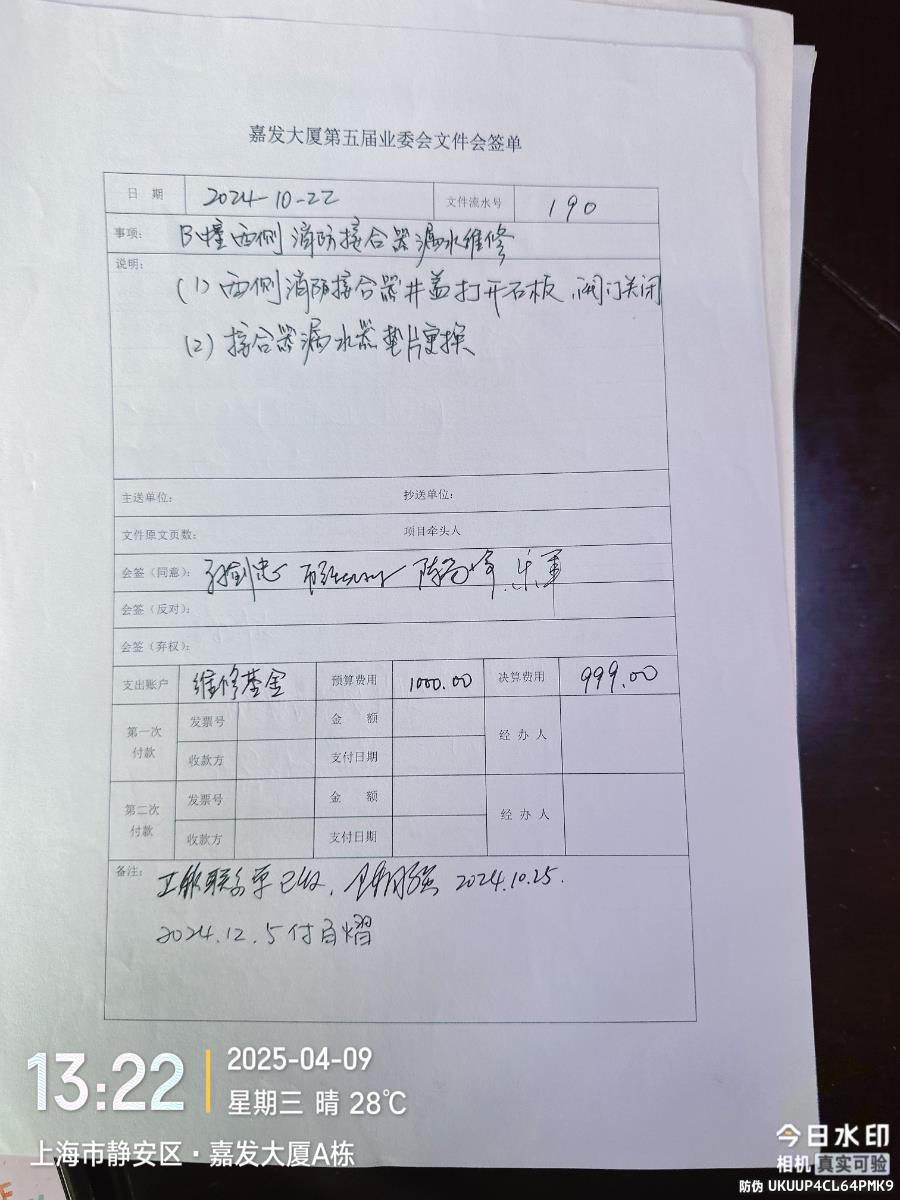 嘉发大厦第五届业委会文件会签单
日 期 2024-10-22 文件流水号 190
事项: B幢西侧消防接合器漏水维修
说明:
(1) 西侧消防接合器井盖打开石板,阀门关闭
(2) 接合器漏水器垫片更换
主送单位: 抄送单位:
文件原文页数: 项目牵头人
会签(同意):
会签(反对):
会签(弃权):
支出账户 维修基金 预算费用 1000.00 决算费用 999.00
第一次付款 发票号 金 额 经 办 人
收款方 支付日期
第二次付款 发票号 金 额 经 办 人
收款方 支付日期
备注: 联系单已收, 2024.10.25.
2024.12.5付自熠
13:22 2025-04-09
星期三 晴 28℃
上海市静安区·嘉发大厦A栋
今日水印
相机 真实可验
防伪 UKUUP4CL64PMK9